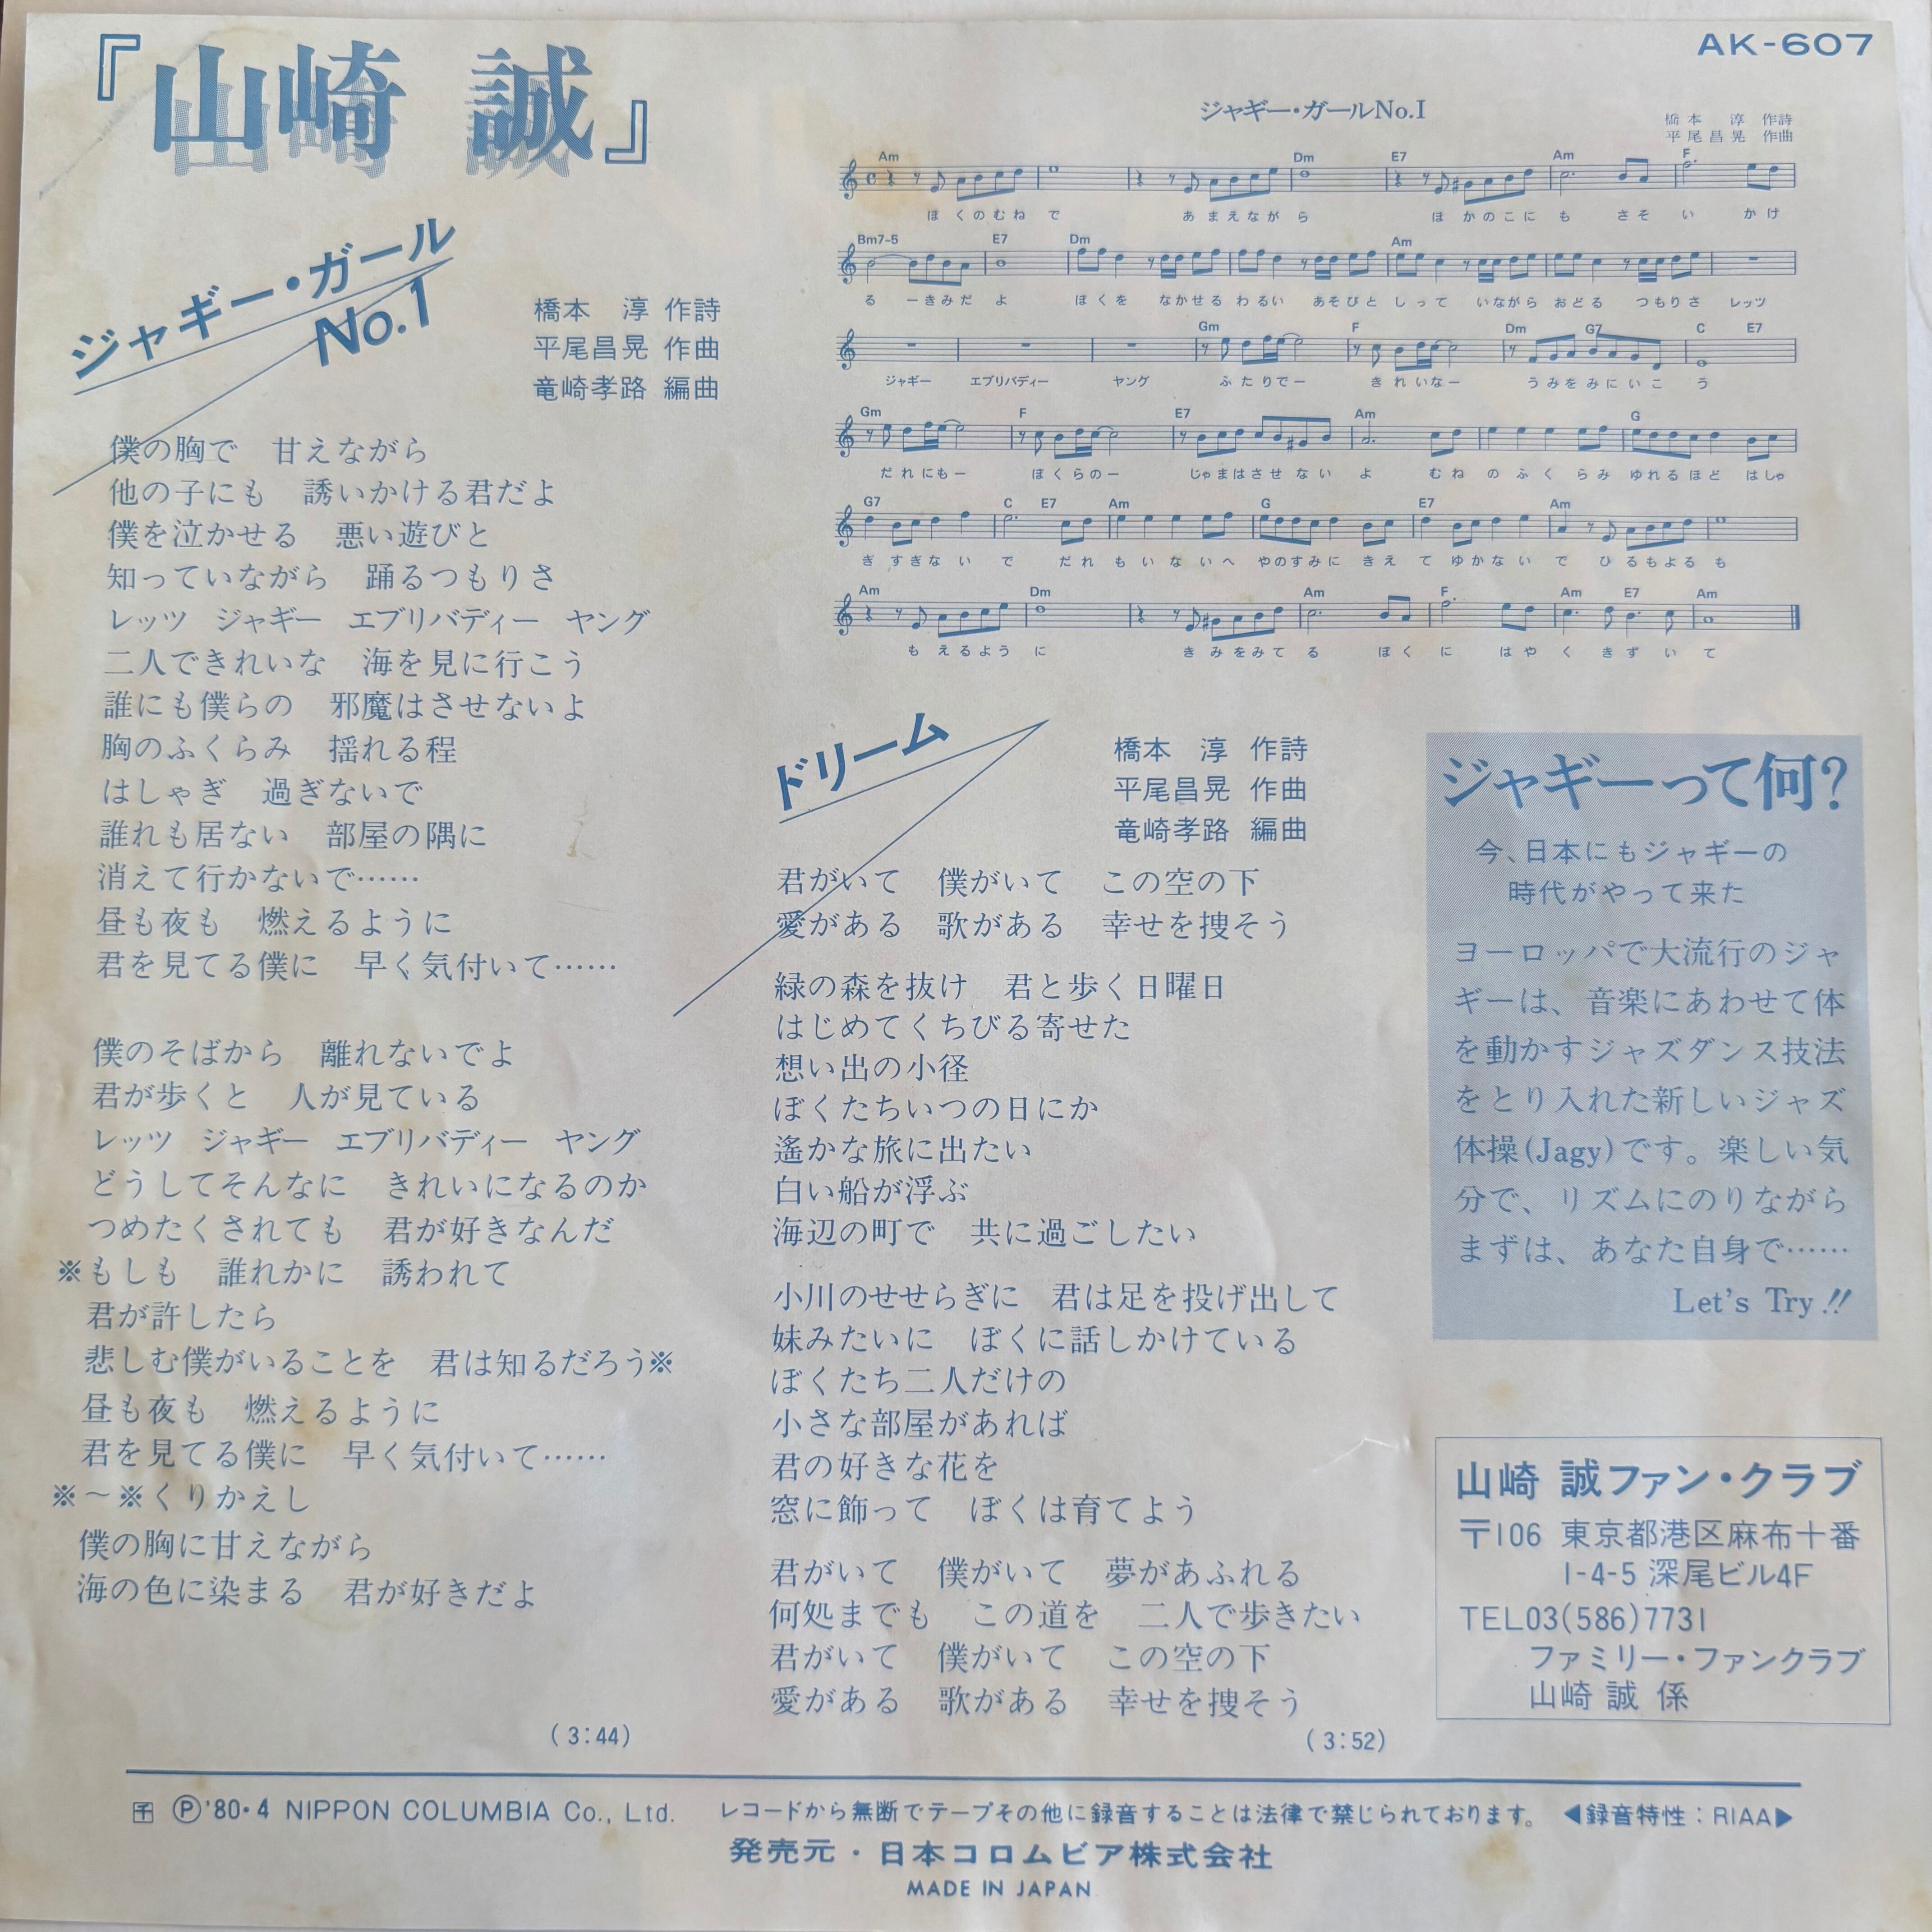 『山崎 誠』
AK-607
ジャギー・ガール
No.1
橋本 淳 作詩
平尾昌晃 作曲
竜崎孝路 編曲
僕の胸で 甘えながら
他の子にも 誘いかける君だよ
僕を泣かせる 悪い遊びと
知っていながら 踊るつもりさ
レッツ ジャギー エブリバディー ヤング
二人できれいな 海を見に行こう
誰にも僕らの 邪魔はさせないよ
胸のふくらみ 揺れる程
はしゃぎ 過ぎないで
誰れも居ない 部屋の隅に
消えて行かないで……
昼も夜も 燃えるように
君を見てる僕に 早く気付いて……
僕のそばから 離れないでよ
君が歩くと 人が見ている
レッツ ジャギー エブリバディー ヤング
どうしてそんなに きれいになるのか
つめたくされても 君が好きなんだ
※もしも 誰れかに 誘われて
君が許したら
悲しむ僕がいることを 君は知るだろう※
昼も夜も 燃えるように
君を見てる僕に 早く気付いて……
※〜※くりかえし
僕の胸に甘えながら
海の色に染まる 君が好きだよ
(3:44)
ジャギー・ガールNo.1
橋本 淳 作詩
平尾昌晃 作曲
Am Dm E7 Am F
ぼくのむねで あまえながら ほかのこにも さそい かけ
Bm7-5 E7 Dm Am
る ーきみだ よ ぼくを なかせる わるい あそびと しって いながら おどる つもりさ レッツ
Gm F Dm G7 C E7
ジャギー エブリバディー ヤング ふたりでー きれいなー うみをみにいこう
Gm F E7 Am G
だれにもー ぼくらのー じゃまはさせない よ むね のふく らみ ゆれるほど はしゃ
G7 C E7 Am G E7 Am
ぎすぎない で だれ もいないへ やのすみに きえ てゆかない で ひるもよる も
Am Dm Am F Am E7 Am
もえるよう に きみをみて る ぼく に はや く きず い て
ドリーム
橋本 淳 作詩
平尾昌晃 作曲
竜崎孝路 編曲
君がいて 僕がいて この空の下
愛がある 歌がある 幸せを捜そう
緑の森を抜け 君と歩く日曜日
はじめてくちびる寄せた
想い出の小径
ぼくたちいつの日にか
遙かな旅に出たい
白い船が浮ぶ
海辺の町で 共に過ごしたい
小川のせせらぎに 君は足を投げ出して
妹みたいに ぼくに話しかけている
ぼくたち二人だけの
小さな部屋があれば
君の好きな花を
窓に飾って ぼくは育てよう
君がいて 僕がいて 夢があふれる
何処までも この道を 二人で歩きたい
君がいて 僕がいて この空の下
愛がある 歌がある 幸せを捜そう
(3:52)
ジャギーって何?
今、日本にもジャギーの
時代がやって来た
ヨーロッパで大流行のジャ
ギーは、音楽にあわせて体
を動かすジャズダンス技法
をとり入れた新しいジャズ
体操(Jagy)です。楽しい気
分で、リズムにのりながら
まずは、あなた自身で……
Let's Try!!
山崎 誠ファン・クラブ
〒106 東京都港区麻布十番
1-4-5 深尾ビル4F
TEL03(586)7731
ファミリー・ファンクラブ
山崎 誠 係
Ⓟ'80・4 NIPPON COLUMBIA Co., Ltd. レコードから無断でテープその他に録音することは法律で禁じられております。 ◀録音特性：RIAA▶
発売元・日本コロムビア株式会社
MADE IN JAPAN